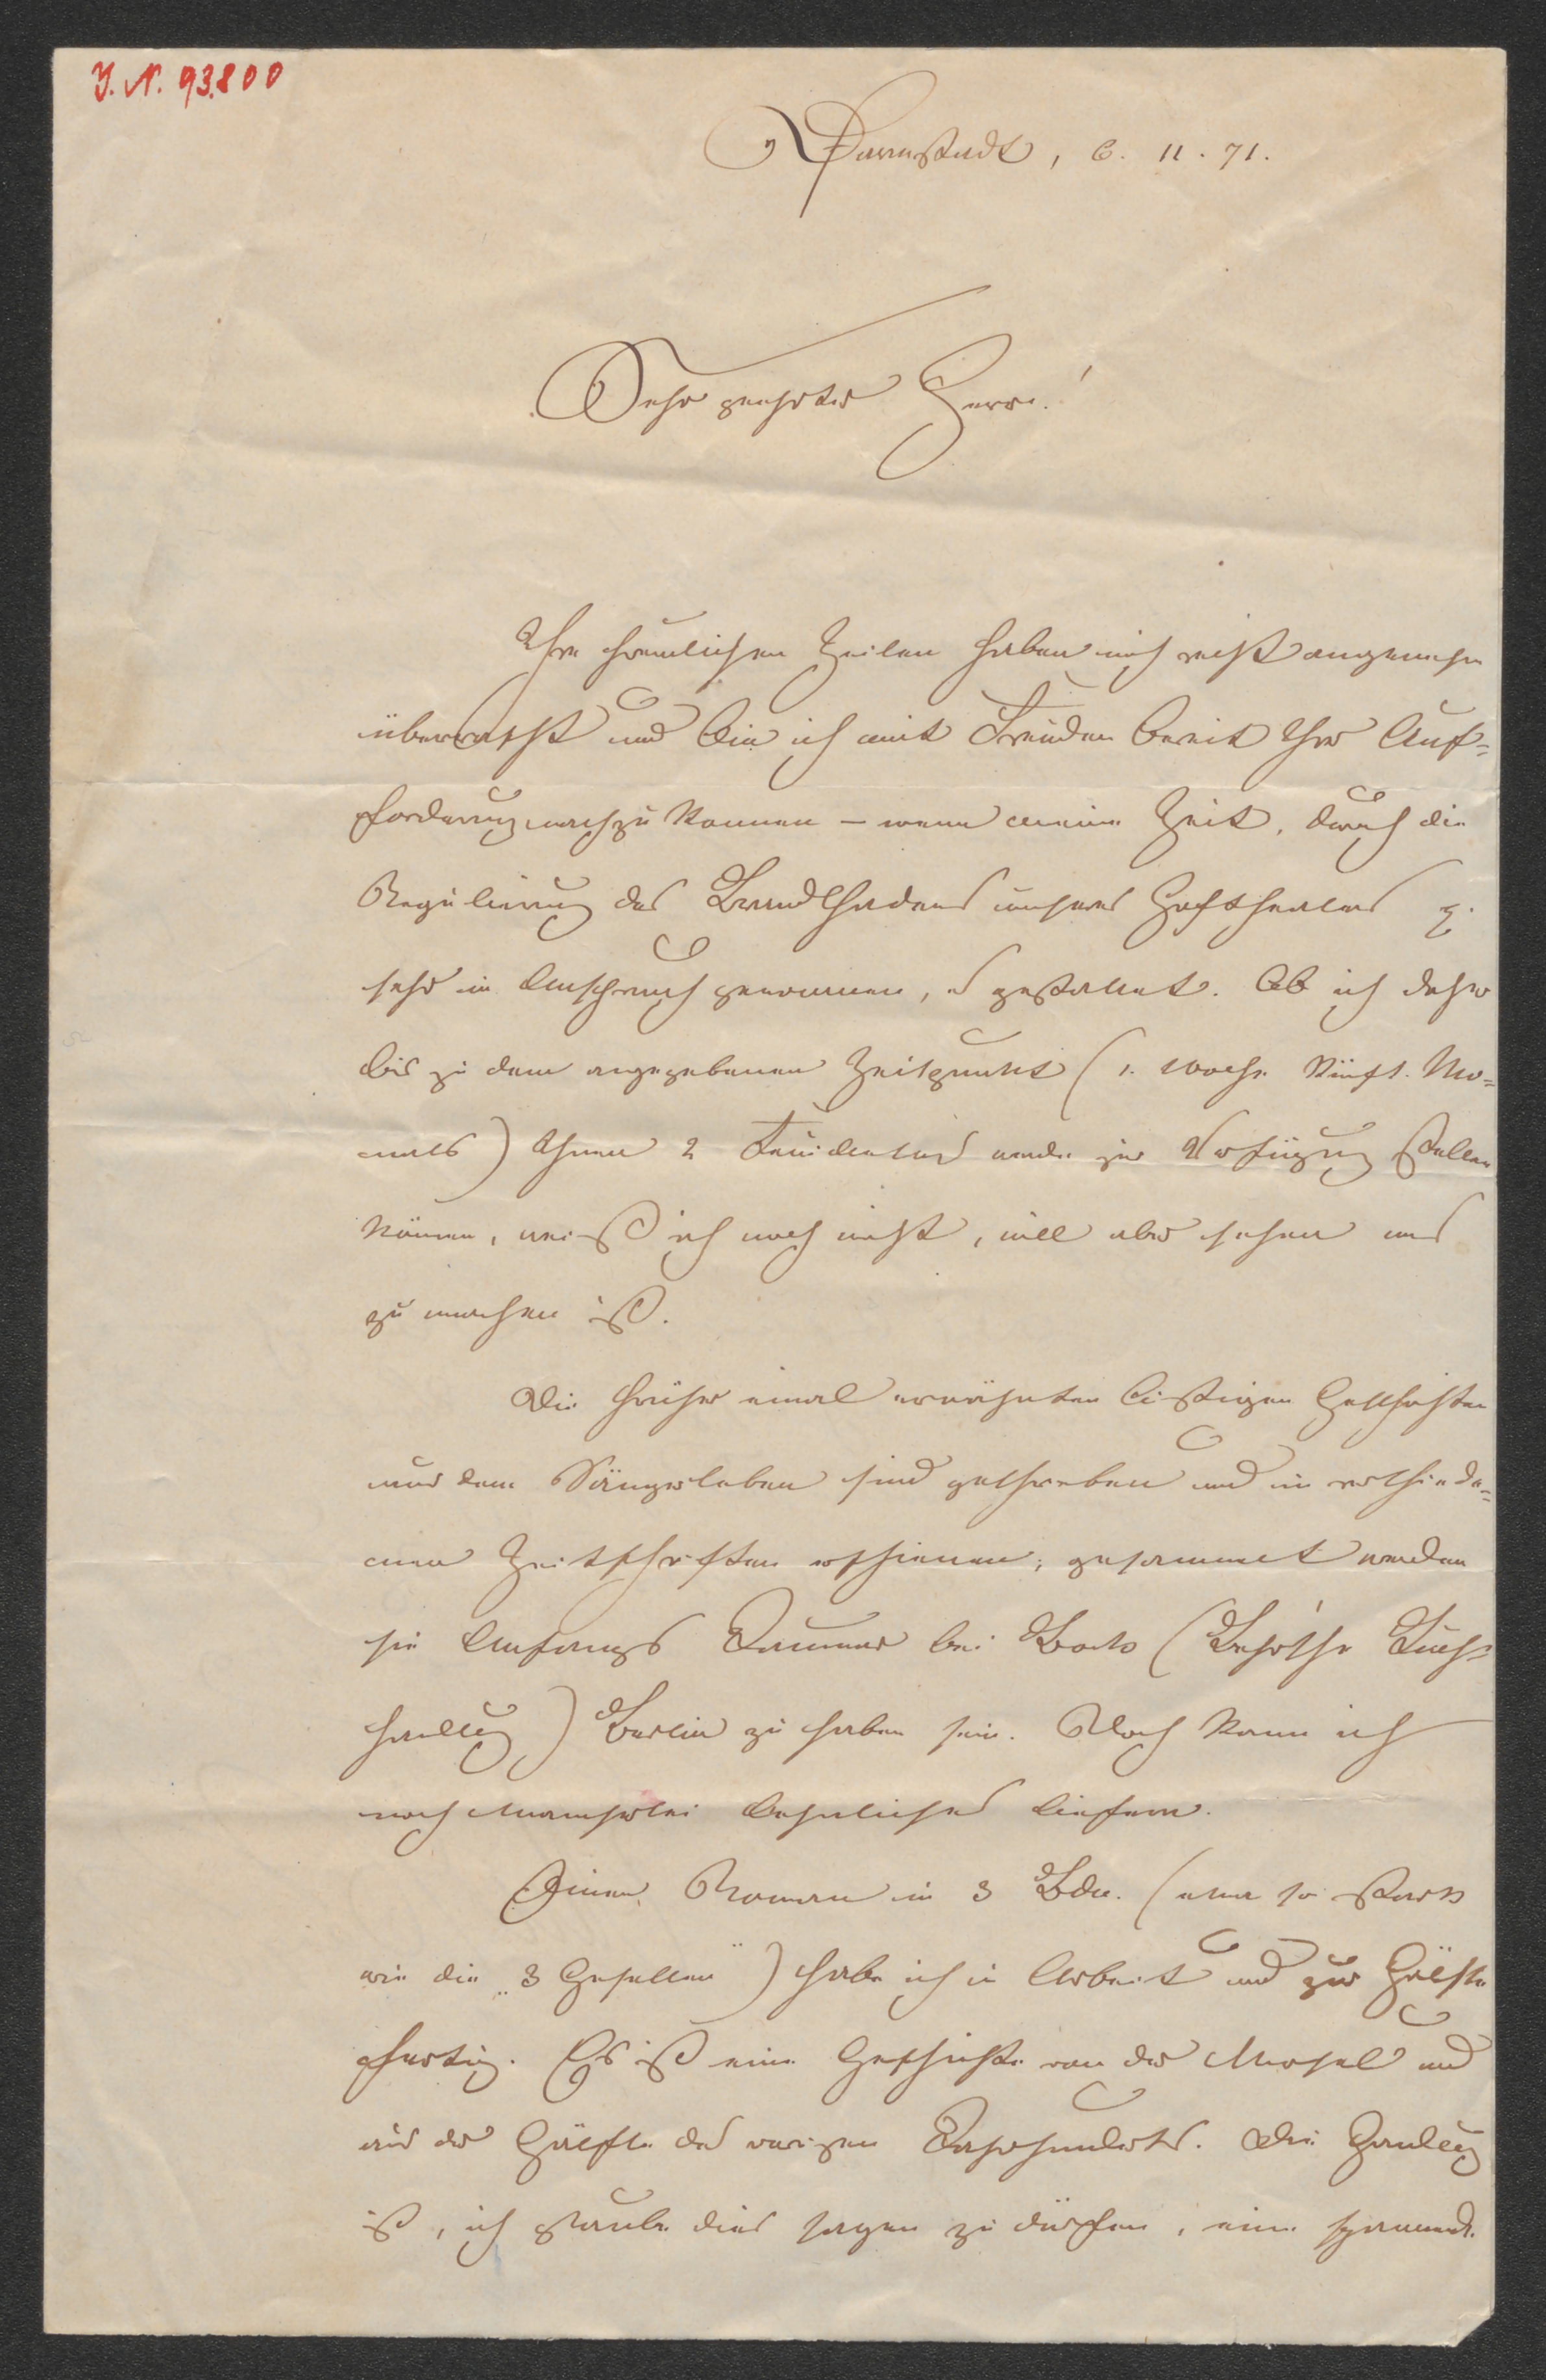 J. N. 93.800
Darmstadt, 6. 11. 71.
Sehr geehrter Herr!
Ihre freundlichen Zeilen haben mich recht angenehm
überrascht und bin ich mit Freuden bereit Ihrer Auf-
forderung nachzukommen – wenn meine Zeit, durch die
Regulierung des Brandschadens unseres Hoftheaters z.
sehr in Anspruch genommen, es gestattet. Ob ich daher
bis zu dem angegebenen Zeitpunkt (1. Woche künft. Mo-
nats) Ihnen 2 werde zur Verfügung stellen
können, weiß ich noch nicht, will aber sehen was
zu machen ist.
Die früher einmal erwähnten lustigen Geschichten
aus dem Sängerleben sind geschrieben und in verschiede-
nen Zeitschriften erschienen; gesammelt werden
sie Anfangs Januar bei Bock ( Buch-
handlung) Berlin zu haben sein. Doch kann ich
noch Mancherlei Aehnliches liefern.
Einen Roman in 3 Bdn. (etwa so stark
wie die „3 Gesellen") habe ich in Arbeit und zur Hälfte
fertig. Es ist eine Geschichte von der Mosel und
aus der Hälfte des vorigen Jahrhunderts. Die Handlung
ist, ich glaube dies sagen zu dürfen, eine spannende